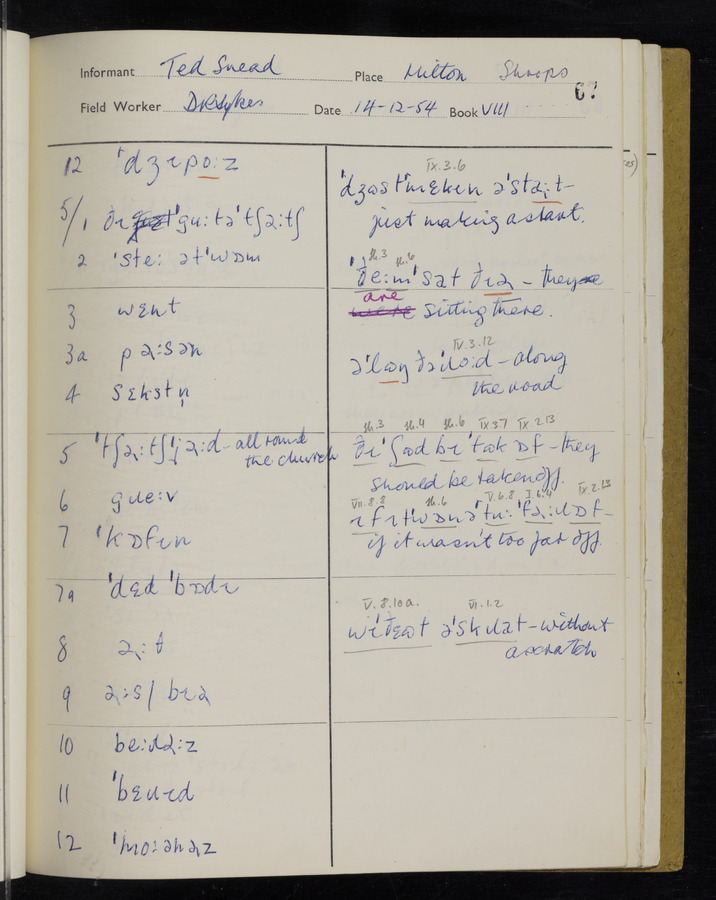 Informant Ted Snead Place Hilton Shrops
Field Worker DRSykes Date 14-12-54 Book VIII
67
12 ˈdʒɪpoːz
5/1 ðɪ ˈguːtəˈtʃəːtʃ
2 ˈsteː ətˈwɒm
3 wɛnt
3a pəːsən
4 sɛkstn̩
5 ˈtʃəːtʃˈjəːd – all round
the church
6 gɹeːv
7 ˈkɒfɪn
7a ˈdɛd ˈbɒdɪ
8 əːθ
9 əːs / bɪə
10 beːɹəːz
11 ˈbɛɹɪd
12 ˈmoːənəz
IX.3.6
ˈdʒʊstˈmɛkɪn əˈstaːt –
just making a start.
sh.3 sh.6
ˈðeːmˈsat ðɪə – they
are
sitting there.
IV.3.12
əˈlɒŋ ðəˈɹoːd – along
the road
sh.3 sh.4 sh.6 IX.3.7 IX.2.13
ðɪˈʃʊd bɪˈtak ɒf – they
should be taken off.
VII.8.8 sh.6 V.6.8 I.6.4 IX.2.13
ɪf ɪtˈwɒnəˈtuːˈfaːɹɒf –
if it wasn't too far off.
V.8.10a. VI.1.2
wɪˈðɛʊt əˈskɹat – without
a scratch